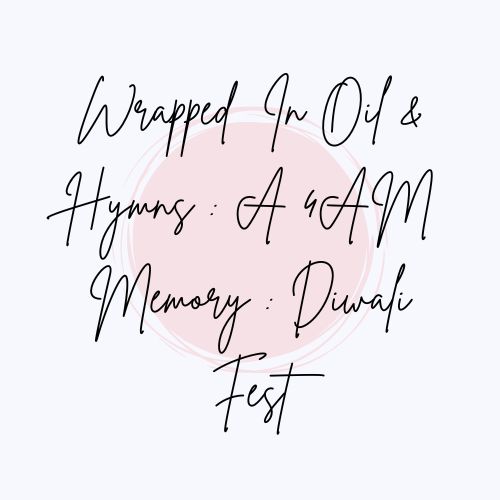 Wrapped In Oil &
Hymns : A 4AM
Memory : Diwali
Fest